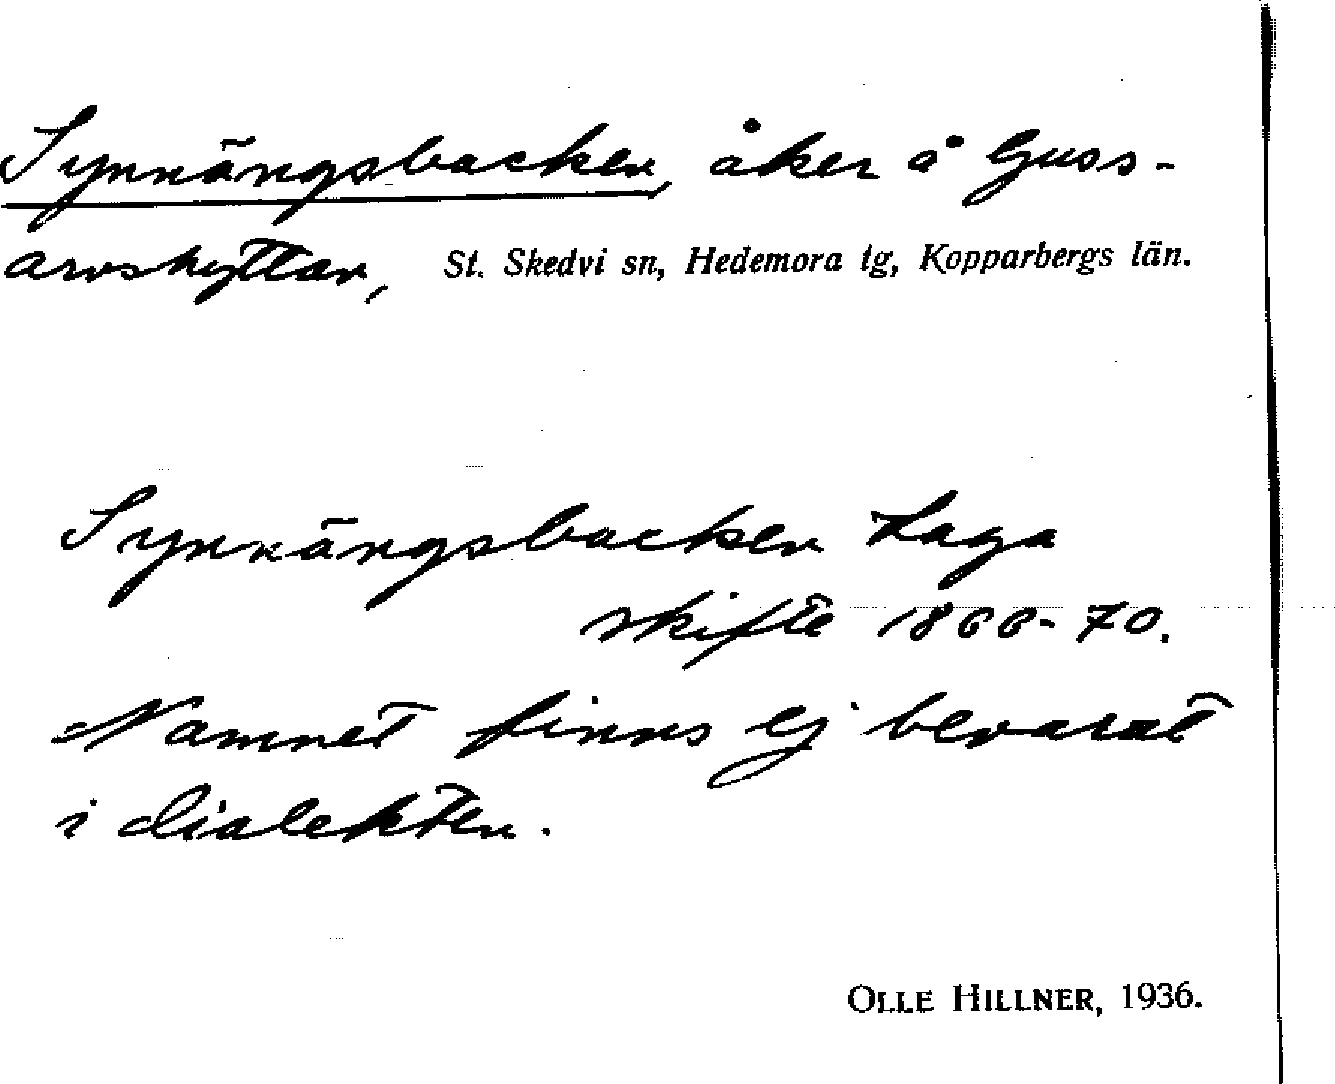 Synnängsbacken, åker å Guss-
arvshyttan, St. Skedvi sn, Hedemora tg, Kopparbergs län.
Synnängsbacken Laga
skifte 1866-70.
Namnet finns ej bevarat
i dialekten.
OLLE HILLNER, 1936.